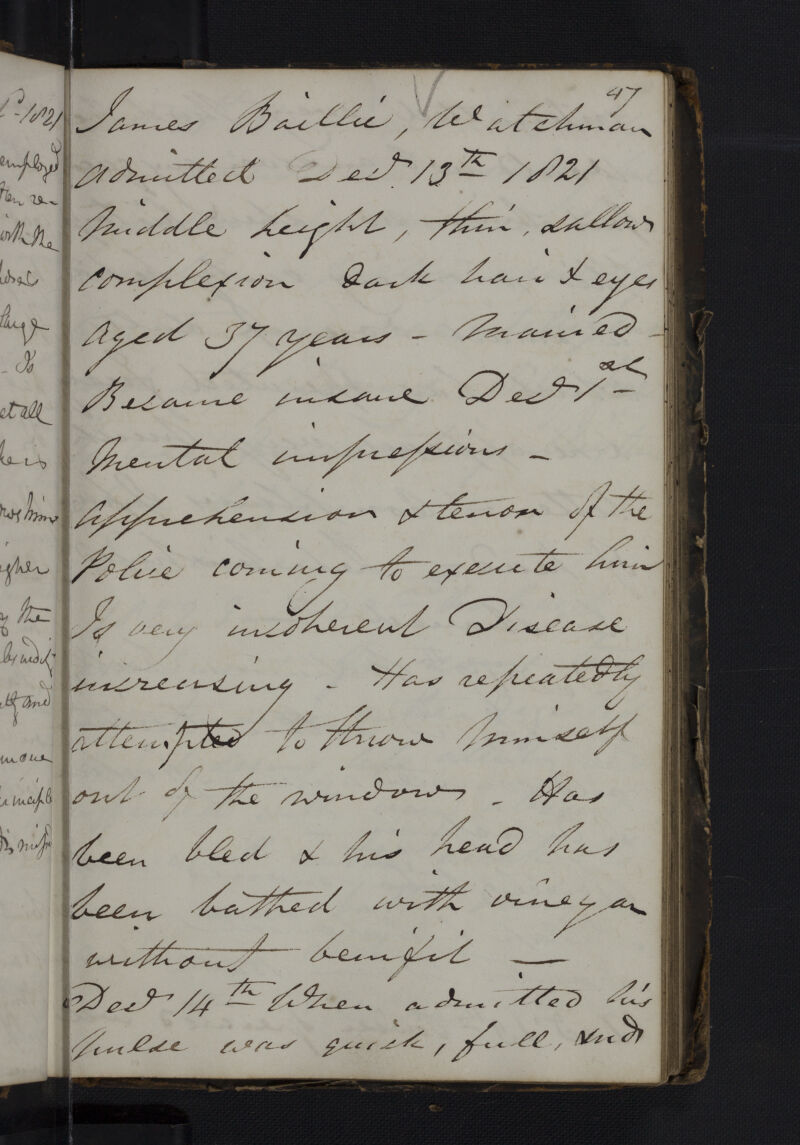 47
James Baillie, Watchman
Admitted Decr. 13th 1821
Middle height, thin, sallow
complexion Dark hair & eyes
Aged 37 years - Married -
Became insane Decr 1st
Mental impressions -
Apprehension & terror of the
Police coming to execute him
Is very incoherent Disease
increasing - Has repeatedly
attempted to throw himself
out of the window - Has
been bled & his head has
been bathed with vinegar
without benifit -
Decr 14th When admitted his
pulse was quick, full, and
1821
employed
with the
large
et all
he is
igher
the
and